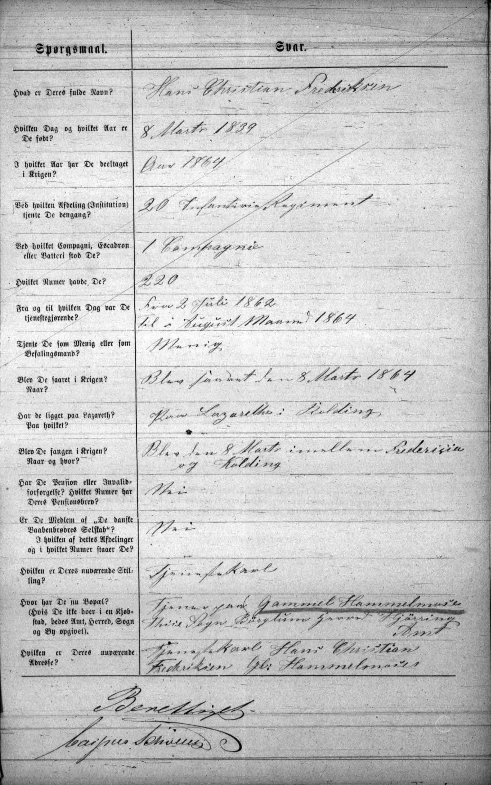 Spørgsmaal.
Svar.
Hvad er Deres fulde Navn?
Hans Christian Fredriksen
Hvilken Dag og hvilket Aar er
De født?
8 Marts 1839
I hvilket Aar har De deeltaget
i Krigen?
Aar 1864
Ved hvilken Afdeling (Institution)
tjente De dengang?
20 Infanterie Regiment
Ved hvilket Compagni, Escadron
eller Batteri stod De?
1 Compagnie
Hvilket Numer havde De?
220
Fra og til hvilken Dag var De
tjenestegjørende?
Fra 2 Juli 1862
til i August Maaned 1864
Tjente De som Menig eller som
Befalingsmand?
Menig
Blev De saaret i Krigen?
Naar?
Blev saaret den 8 Marts 1864
Har de ligget paa Lazareth?
Paa hvilket?
Paa Lazarethe i Kolding
Blev De fangen i Krigen?
Naar og hvor?
Blev den 8 Marts imellem Fredericia
og Kolding
Har De Pension eller Invalid-
forsørgelse? Hvilket Numer har
Deres Pensionsbrev?
Nei
Er De Medlem af „De danske
Vaabenbrødres Selskab"?
I hvilken af dettes Afdelinger
og i hvilket Numer staaer De?
Nei
Hvilken er Deres nuværende Stil-
ling?
Tjenestekarl
Hvor har De nu Bopæl?
(Hvis De ikke boer i en Kjøb-
stad, bedes Amt, Herred, Sogn
og By opgivet).
Tjener paa Gammel Hammelmose
Sogn Børglum Herred Hjørring
Amt
Hvilken er Deres nuværende
Adresse?
Tjenestekarl Hans Christian
Fredriksen Gl. Hammelmose